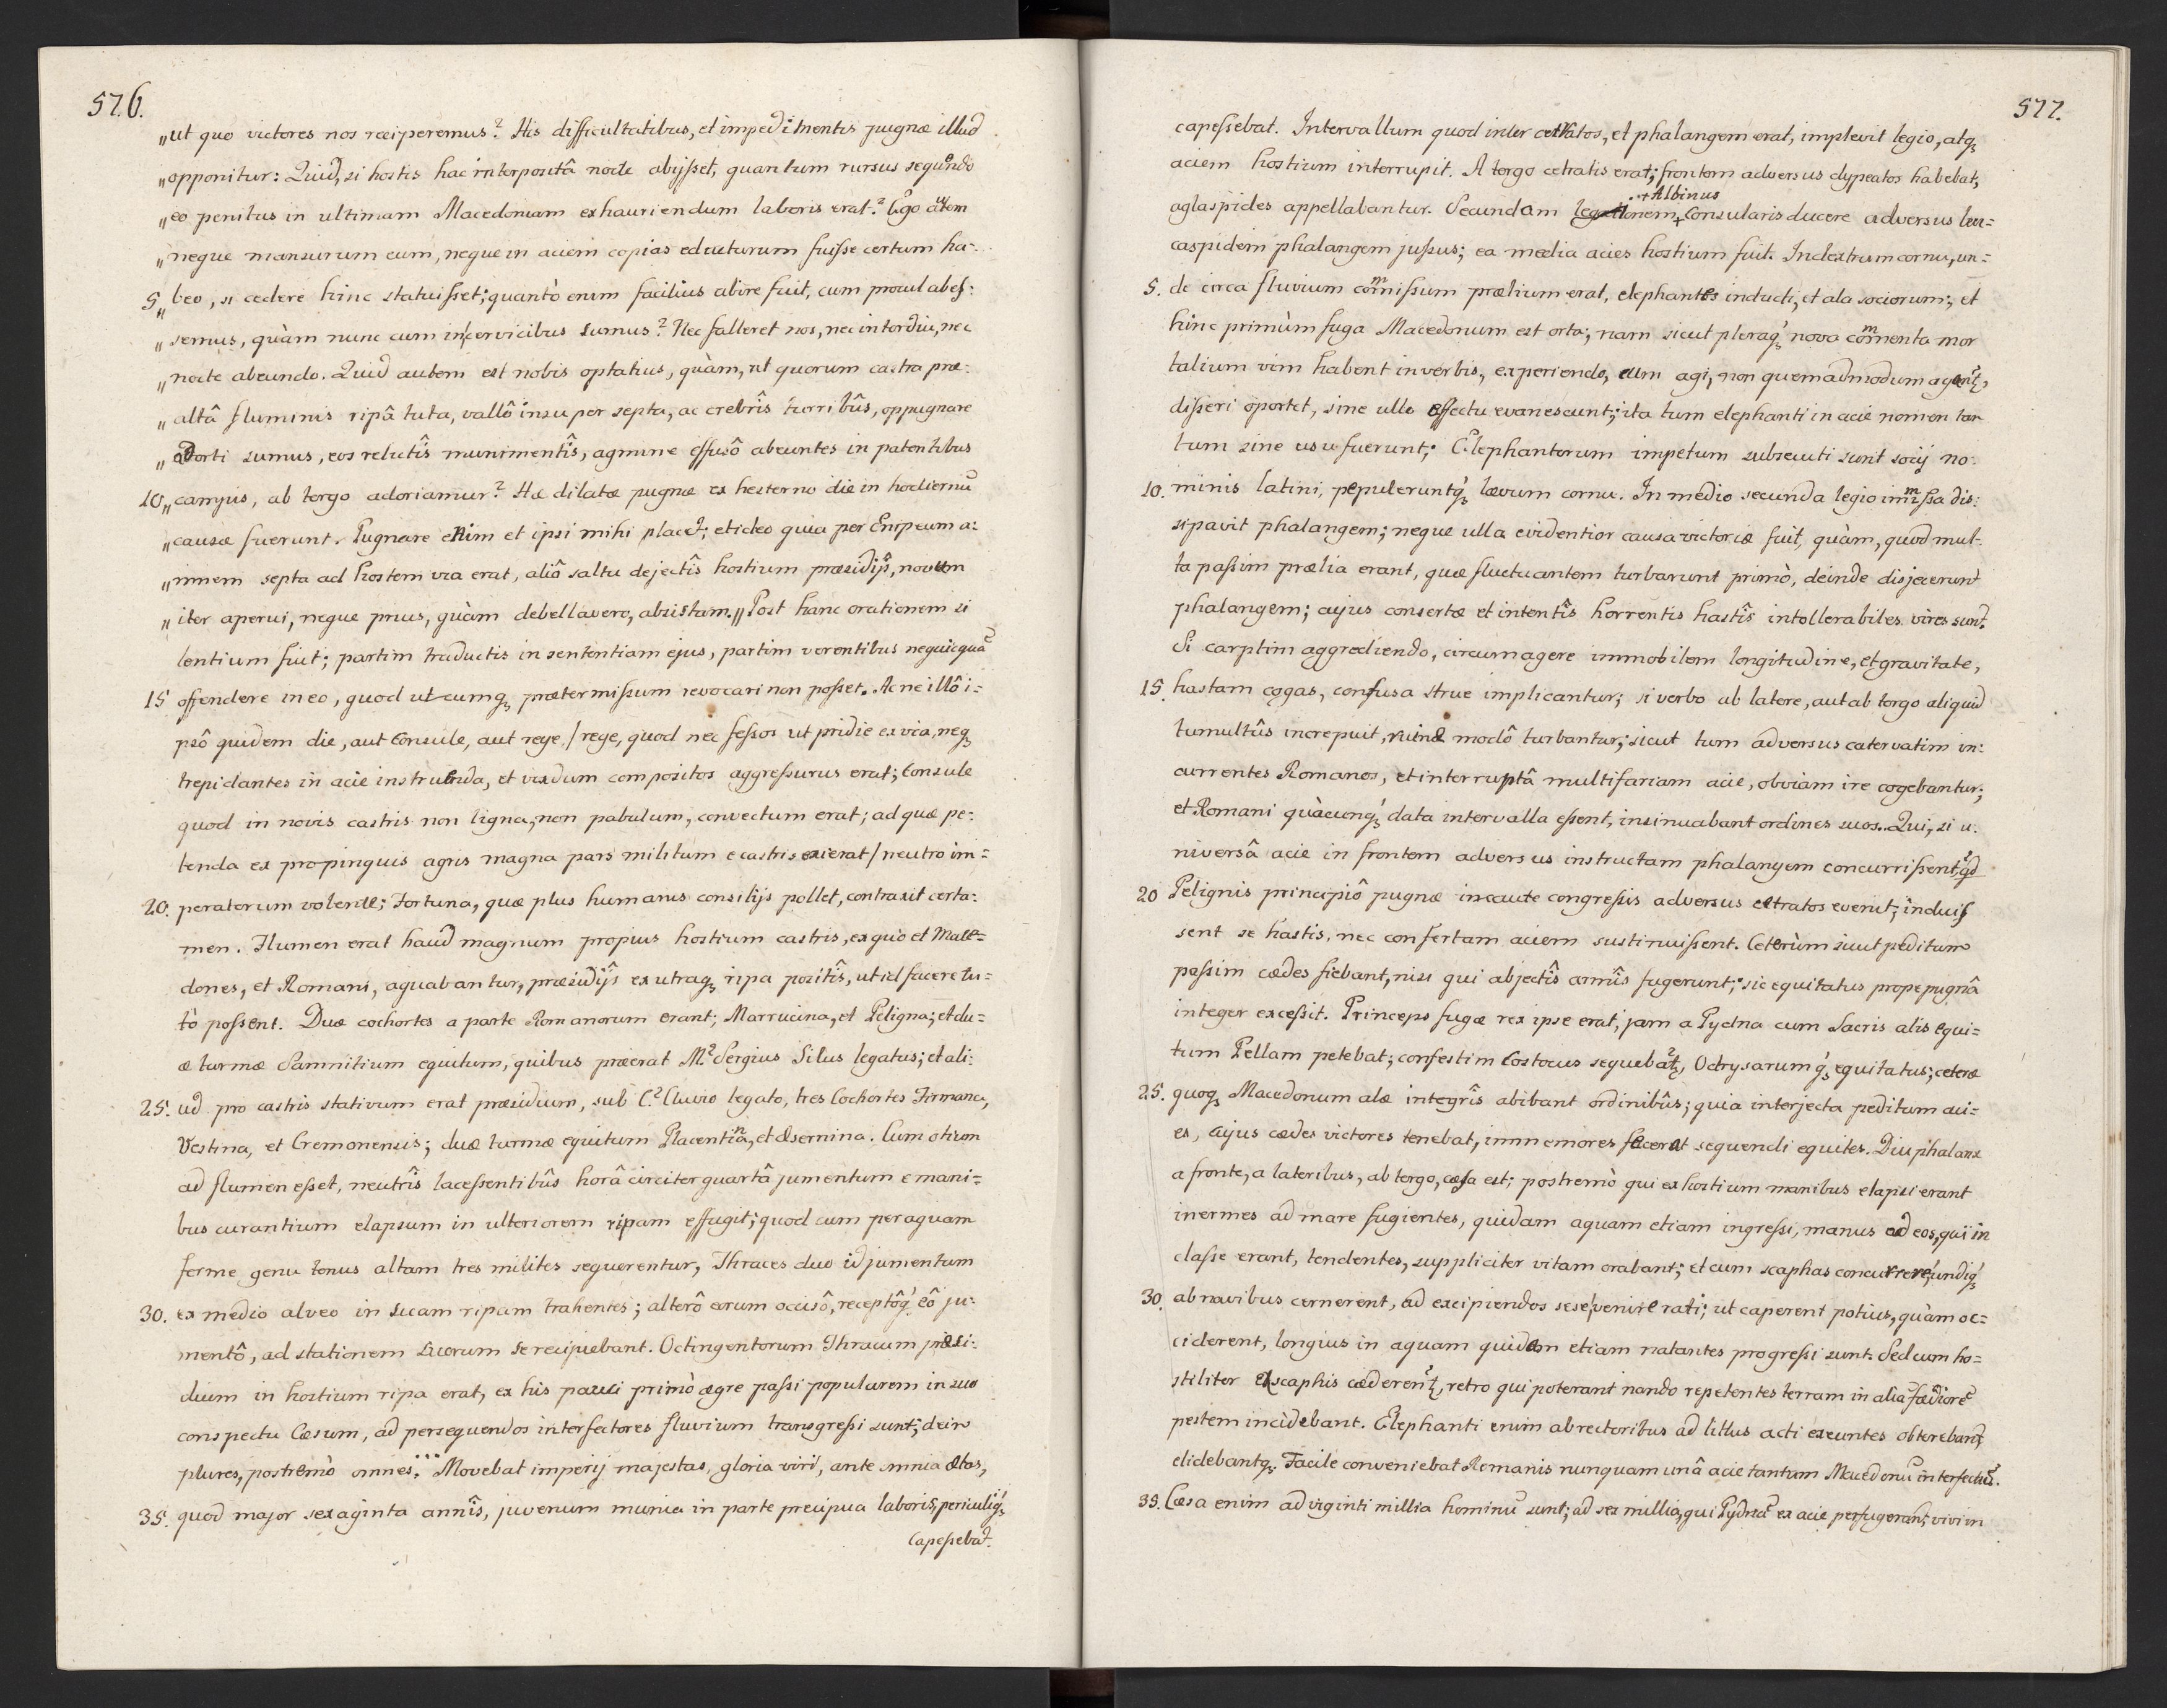 576.
„ut quo victores nos reciperemus? His difficultatibus, et impedimentis pugnæ illud
„opponitur: Quid, si hostis hac interpositâ nocte abijsset, quantum rursus sequendo
„eo penitus in ultimam Macedoniam exhauriendum laboris erat? Ego autem
„neque mansurum eum, neque in aciem copias educturum fuisse certum ha-
5„ beo, si cedere hinc statuisset; quantò enim facilius abire fuit, cum procul abes-
„semus, quàm nunc cum in cervicibus sumus? Nec falleret nos, nec interdiu, nec
„nocte abeundo. Quid autem est nobis optatius, quàm, ut quorum castra præ-
„altâ fluminis ripâ tuta, vallô insuper septa, ac crebrîs turribûs, oppugnare
„adorti sumus, eos relictîs munimentîs, agmine effusô abeuntes in patentibus
10„ campis, ab tergo adoriamur? Hæ dilatæ pugnæ ex hesterno die in hodiernū
„causæ fuerunt. Pugnare enim et ipsi mihi placet; et ideo quia per Enipeum a-
„mnem septa ad hostem via erat, aliô saltu dejectîs hostium præsidijs, novum
„iter aperui, neque prius, quàm debellavero, absistam.„ Post hanc orationem si
lentium fuit; partim traductis in sententiam ejus, partim verentibus nequicquā
15 offendere in eo, quod utcumq₃ prætermissum revocari non posset. Ac ne illô i-
psô quidem die, aut Consule, aut rege / rege, quod nec fessos ut pridie ex via, neq₃
trepidantes in acie instruenda, et vixdum compositos aggressurus erat; Consule
quod in novis castris non ligna, non pabulum, convectum erat; ad quæ pe-
tenda ex propinquis agris magna pars militum e castris exierat / neutro im-
20. peratorum volente; Fortuna, quæ plus humanis consilijs pollet, contraxit certa-
men. Flumen erat haud magnum propius hostium castris, ex quo et Mace-
dones, et Romani, aquabantur, præsidijs ex utraq₃ ripa positîs, ut id facere tu-
tò possent. Duæ cochortes a parte Romanorum erant; Marrucina, et Peligna; et du-
æ turmæ Samnitium equitum, quibus præerat M.² Sergius Silus legatus; et ali-
25. ud pro castris stativum erat præsidium, sub C.² Cluvio legato, tres Cochortes Firmana,
Vestina, et Cremonensis; duæ turmæ equitum Placentina, et Æsernina. Cum otium
ad flumen esset, neutrîs lacessentibûs horâ circiter quartâ jumentum e mani-
bus curantium elapsum in ulteriorem ripam effugit; quod cum per aquam
ferme genu tenus altam tres milites sequerentur, Thraces duo id jumentum
30. ex medio alveo in suam ripam trahentes; alterô eorum occisô, receptôq₃ eô ju-
mentô, ad stationem suorum se recipiebant. Octingentorum Thracum præsi-
dium in hostium ripa erat, ex his pauci primò ægre passi popularem in suo
conspectu Cæsum, ad persequendos interfectores fluvium transgressi sunt; dein
plures, postremò omnes. ... Movebat imperij majestas, gloria viri, ante omnia ætas,
35. quod major sexaginta annîs, juvenum munia in parte precipua laboris, periculiq₃
Capessebat.
577.
capessebat. Intervallum quod inter cetratos, et phalangem erat, implevit legio, atq₃
aciem hostium interrupit. A tergo cetratis erat; frontem adversus clypeatos habebat,
aglaspides appellabantur. Secundam legionem + Albinus Consularis ducere adversus leu-
caspidem phalangem jussus; ea media acies hostium fuit. In dextrum cornu, un-
5. de circa fluvium commissum prælium erat, elephantes inducti, et ala sociorum; et
hinc primùm fuga Macedonum est orta; nam sicut pleraq₃ nova commenta mor
talium vim habent in verbis, experiendo, cum agi, non quemadmodum agant,
disseri oportet, sine ullo effectu evanescunt; ita tum elephanti in acie nomen tan
tum sine usu fuerunt; Elephantorum impetum subsecuti sunt socij no-
10. minis latini, pepuleruntq₃ lævum cornu. In medio secunda legio immissa dis-
sipavit phalangem; neque ulla evidentior causa victoriæ fuit, quàm, quod mul-
ta passim prælia erant, quæ fluctuantem turbarunt primò, deinde disjecerunt
phalangem; cujus consertæ et intentîs horrentis hastîs intollerabiles vires sunt.
Si carptim aggrediendo, circumagere immobilem longitudine, et gravitate,
15. hastam cogas, confusa strue implicantur; si verbo ab latere, aut ab tergo aliquid
tumultûs increpuit, ruinæ modô turbantur; sicut tum adversus catervatim in-
currentes Romanos, et interruptâ multifariam acie, obviam ire cogebantur;
et Romani quàcunq₃ data intervalla essent, insinuabant ordines suos. Qui, si u-
niversâ acie in frontem adversus instructam phalangem concurrissent, qd
20 Pelignis principiô pugnæ incaute congressis adversus cetratos evenit; induis
sent se hastis, nec confertam aciem sustinuissent. Ceterùm sicut peditum
passim cædes fiebant, nisi qui abjectîs armîs fugerunt; sic equitatus prope pugnâ
integer excessit. Princeps fugæ rex ipse erat, jam a Pydna cum Sacris alis equi-
tum Pellam petebat; confestim Costocus sequebat, Odrysarumq₃ equitatus; ceteræ
25. quoq₃ Macedonum alæ integrîs abibant ordinibûs; quia interjecta peditum aci-
es, cujus cædes victores tenebat, immemores fecerat sequendi equites. Diu phalanx
a fronte, a lateribus, ab tergo, cæsa est; postremò qui ex hostium manibus elapsi erant
inermes ad mare fugientes, quidam aquam etiam ingressi, manus ad eos, qui in
classe erant, tendentes, suppliciter vitam orabant; et cum scaphas concurrere undiq₃
30. ab navibus cernerent, ad excipiendos sese venire rati; ut caperent potius, quàm oc-
ciderent, longius in aquam quidam etiam natantes progressi sunt. Sed cum ho-
stiliter e scaphis cæderent, retro qui poterant nando repetentes terram in aliā fœdiorē
pestem incidebant. Elephanti enim ab rectoribus ad littus acti exeuntes obterebant,
elidebantq₃. Facile conveniebat Romanis nunquam unâ acie tantum Macedonū interfectū.
35. Cæsa enim ad viginti millia hominū sunt; ad sex millia, qui Pydnā ex acie perfugerant, vivi in